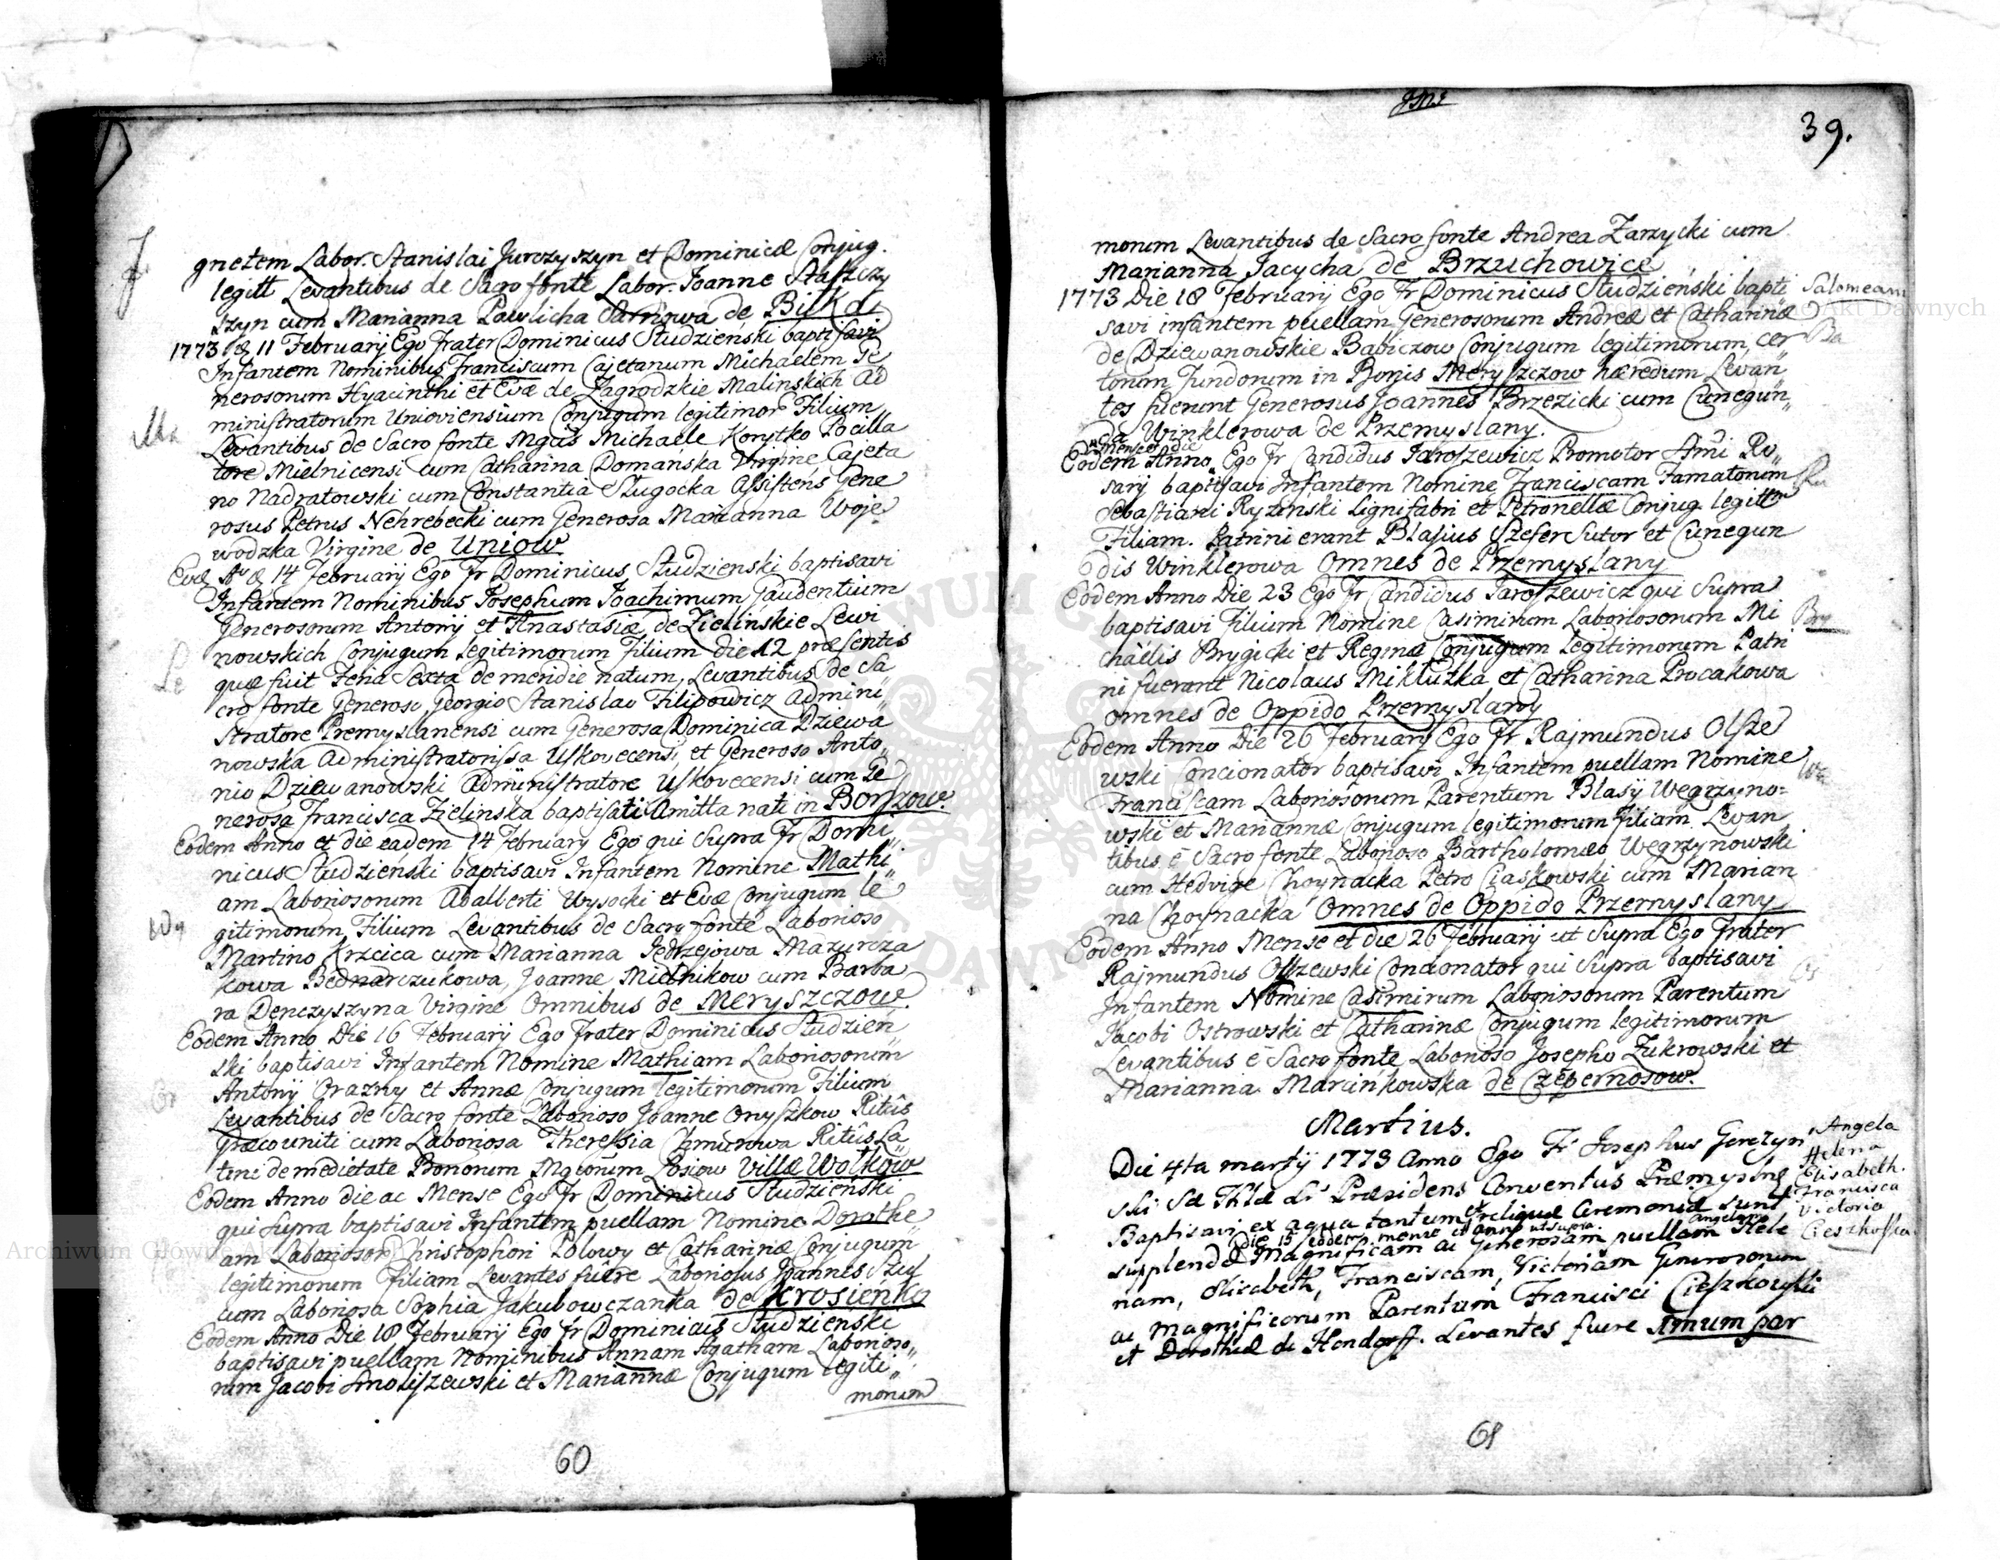 gnetem Labor. Stanislai Jurczyszyn et Dominicæ Conjug.
legitt Levantibus de Sacro fonte Labor. Joanne Staszczy
szyn cum Marianna Pawlicha Sarnowa de Biłka
1773 d 11 Februarij Ego Frater Dominicus Studzieński baptisavi
Infantem Nominibus Franciscum Cajetanum Michaelem Ge
nerosorum Hyacinthi et Evæ de Zagrodzkie Malinskich Ad
ministratorum Unioviensium Conjugum legitimor Filium
Levantibus de Sacro fonte Mgcus Michaele Korytko Pocilla
tore Mielnicensi cum Catharina Domańska Virgine Cajeta
no Nadratowski cum Constantia Sługocka Assistens Gene
rosus Petrus Nehrebecki cum Generosa Marianna Woje
wodzka Virgine de Uniow
Eod Ao d 14 Februarij Ego Fr Dominicus Studzienski baptisavi
Infantem Nominibus Josephum Joachimum Gaudentium
Generosorum Antonij et Anastasiæ de Zielinskie Lewi
nowskich Conjugum Legitimorum filium die 12 præsentis
quæ fuit Feria Sexta de meridie natum, Levantibus de Sa
cro fonte Generoso Georgio Stanislao Filipowicz Admini
stratore Premyslanensi cum Generosa Dominica Dziewa
nowska Administratorissa Uskovecensi, et Generoso Anto
nio Dziewanowski Administratore Uskovecensi cum Ge
nerosa Francisca Zielinska baptisati Amitta nati in Borszow.
Eodem Anno et die eadem 14 February Ego qui Supra Fr Domi
nicus Studzieński baptisavi Infantem Nomine Mathi
am Laboriosorum Adalberti Wysocki et Evæ Conjugum le
gitimorum Filium Levantibus de Sacro fonte Laborioso
Martino Krzcica cum Marianna Jedrzejowa Mazurcza
kowa Bednarczukowa, Joanne Mielnikow cum Barba
ra Denczyszyna Virgine Omnibus de Meryszczow.
Eodem Anno Die 16 Februarij Ego Frater Dominicus Studzień
ski baptisavi Infantem Nomine Mathiam Laboriosorum
Antonij Grazny et Annæ Conjugum legitimorum Filium
Levantibus de Sacro fonte Laborioso Joanne Onyszkow Ritûs
Græco uniti cum Laboriosa Theressia Chmurowa Ritûs La
tini de medietate Bonorum Mgiorum Łosiow Villæ Wołkow
Eodem Anno die ac Mense Ego Fr Dominicus Studzieński
qui Supra baptisavi Infantem puellam Nomine Dorothe
am Laborioson Christophori Polowy et Catharinæ Conjugum
legitimorum filiam Levantes fuere Laboriosus Joannes Szul
cum Laboriosa Sophia Jakubowczanka de Krosienko
Eodem Anno Die 18 Februarij Ego Fr Dominicus Studzieński
baptisavi puellam Nominibus Annam Agatham Laborioso
rum Jacobi Smoliszewski et Mariannæ Conjugum legiti
monum
60
39.
morum Levantibus de Sacro fonte Andrea Zarzycki cum
Marianna Jacycha de Brzuchowice
1773 Die 18 Februarij Ego Fr Dominicus Studzieński bapti
Salomeam
savi infantem puellam Generosorum Andreæ et Catharinæ
de Dziewanowskie Babiczow Conjugum legitimorum, cer
Ba
torum Fundorum in Bonis Meryszczow hæredum Levan
tes fuerunt Generosus Joannes Brzezicki cum Cunegun
da Winklerowa de Przemyslany.
mense et die
Eodem Anno Ego Fr Candidus Jaroszewicz Promotor SSmi Ro
sarij baptisavi Infantem Nomine Franciscam Famatorum
Sebastiani Ryzinski Lignifabri et Petronellæ Conjug. legitt
Filiam. Patrini erant Blasius Szefer Sutor et Cunegun
dis Winklerowa Omnes de Przemyslany
Eodem Anno Die 23 Ego Fr Candidus Jaroszewicz qui Supra
baptisavi Filium Nomine Casimirum Laboriosorum Mi
Bry
chäelis Brygicki et Reginæ Conjugum Legitimorum Patri
ni fuerant Nicolaus Mikłuzka et Catharina Procakowa
Omnes de Oppido Przemyslany
Eodem Anno Die 26 Februarij Ego Fr Rajmundus Olsze
wski Concionator baptisavi Infantem puellam Nomine
Franciscam Laboriosorum Parentum Blasij Wegrzyno=
wski et Mariannæ Conjugum legitimorum filiam Levan
tibus è Sacro fonte Laborioso Bartholomæo Wegrzynowski
cum Hedvige Choynacka Petro Ciaskowski cum Marian
na Choynacka Omnes de Oppido Przemyslany
Eodem Anno Mense et die 26 Februarij ut Supra Ego Frater
Rajmundus Olszewski Concionator qui Supra baptisavi
Infantem Nomine Casimirum Laboriosorum Parentum
Jacobi Ostrowski et Catharinæ Conjugum legitimorum
Levantibus è Sacro fonte Laborioso Josepho Zukrowski et
Marianna Marcińkowska de Czebernosow.
Martius.
Die 4ta martij 1773 Anno Ego Fr Josephus Gerczyn
ski Sæ Thlæ Lr Præsidens Conventus Præmysne
Baptisavi ex aqua tantum et reliquæ Ceremoniæ sunt
Die 15 eodem mense et anno ut supra.
supplendæ Magnificam ac Generosam puellam Angelam Hele
nam, Elisabeth, Franciscam, Victoriam Generosorum
ac Magnificorum Parentum Francisci Cieszkowski
et Dorotheæ de Hendorff. Levantes fuere Imum par
Angela
Helena
Elisabeth.
Francisca
Victoria
Cieszkofska
61
Archiwum Główne Akt Dawnych